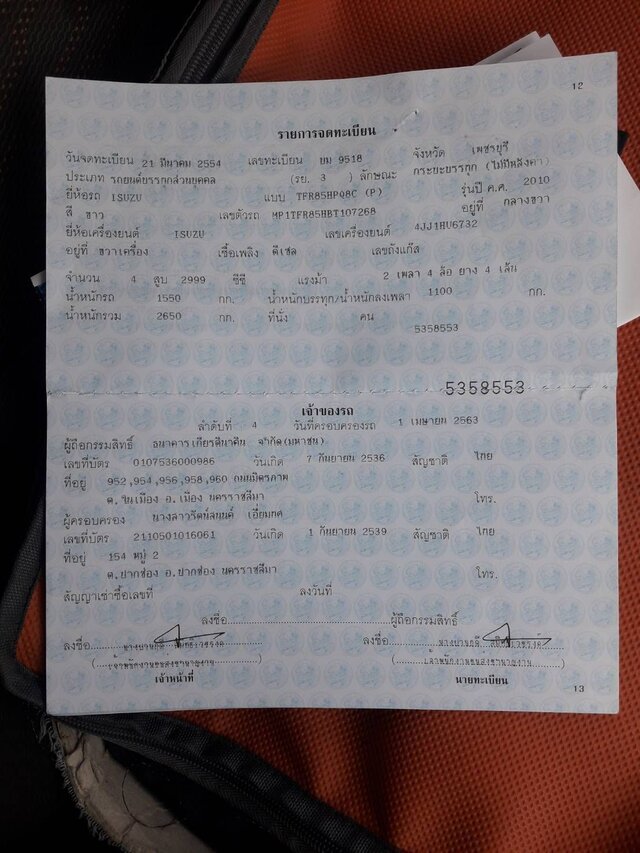 12
รายการจดทะเบียน
วันจดทะเบียน 21 มีนาคม 2554 เลขทะเบียน ยม 9518 จังหวัด เพชรบุรี
ประเภท รถยนต์บรรทุกส่วนบุคคล (รย. 3 ) ลักษณะ กระบะบรรทุก (ไม่มีหลังคา)
ยี่ห้อรถ ISUZU แบบ TFR85HPQ8C (P) รุ่นปี ค.ศ. 2010
สี ขาว เลขตัวรถ MP1TFR85HBT107268 อยู่ที่ กลางขวา
ยี่ห้อเครื่องยนต์ ISUZU เลขเครื่องยนต์ 4JJ1HU6732
อยู่ที่ ขวาเครื่อง เชื้อเพลิง ดีเซล เลขถังแก๊ส
จำนวน 4 สูบ 2999 ซีซี แรงม้า 2 เพลา 4 ล้อ ยาง 4 เส้น
น้ำหนักรถ 1550 กก. น้ำหนักบรรทุก/น้ำหนักลงเพลา 1100 กก.
น้ำหนักรวม 2650 กก. ที่นั่ง คน
5358553
5358553
เจ้าของรถ
ลำดับที่ 4 วันที่ครอบครองรถ 1 เมษายน 2563
ผู้ถือกรรมสิทธิ์ ธนาคารเกียรตินาคิน จำกัด(มหาชน)
เลขที่บัตร 0107536000986 วันเกิด 7 กันยายน 2536 สัญชาติ ไทย
ที่อยู่ 952,954,956,958,960 ถนนมิตรภาพ
ต.ในเมือง อ.เมือง นครราชสีมา โทร.
ผู้ครอบครอง
เลขที่บัตร 2110501016061 วันเกิด 1 กันยายน 2539 สัญชาติ ไทย
ที่อยู่ 154 หมู่ 2
ต.ปากช่อง อ.ปากช่อง นครราชสีมา โทร.
สัญญาเช่าซื้อเลขที่ ลงวันที่
ลงชื่อ ผู้ถือกรรมสิทธิ์
ลงชื่อ ลงชื่อ
(เจ้าพนักงานขนส่งชำนาญงาน) (เจ้าพนักงานขนส่งชำนาญงาน)
เจ้าหน้าที่ นายทะเบียน
13